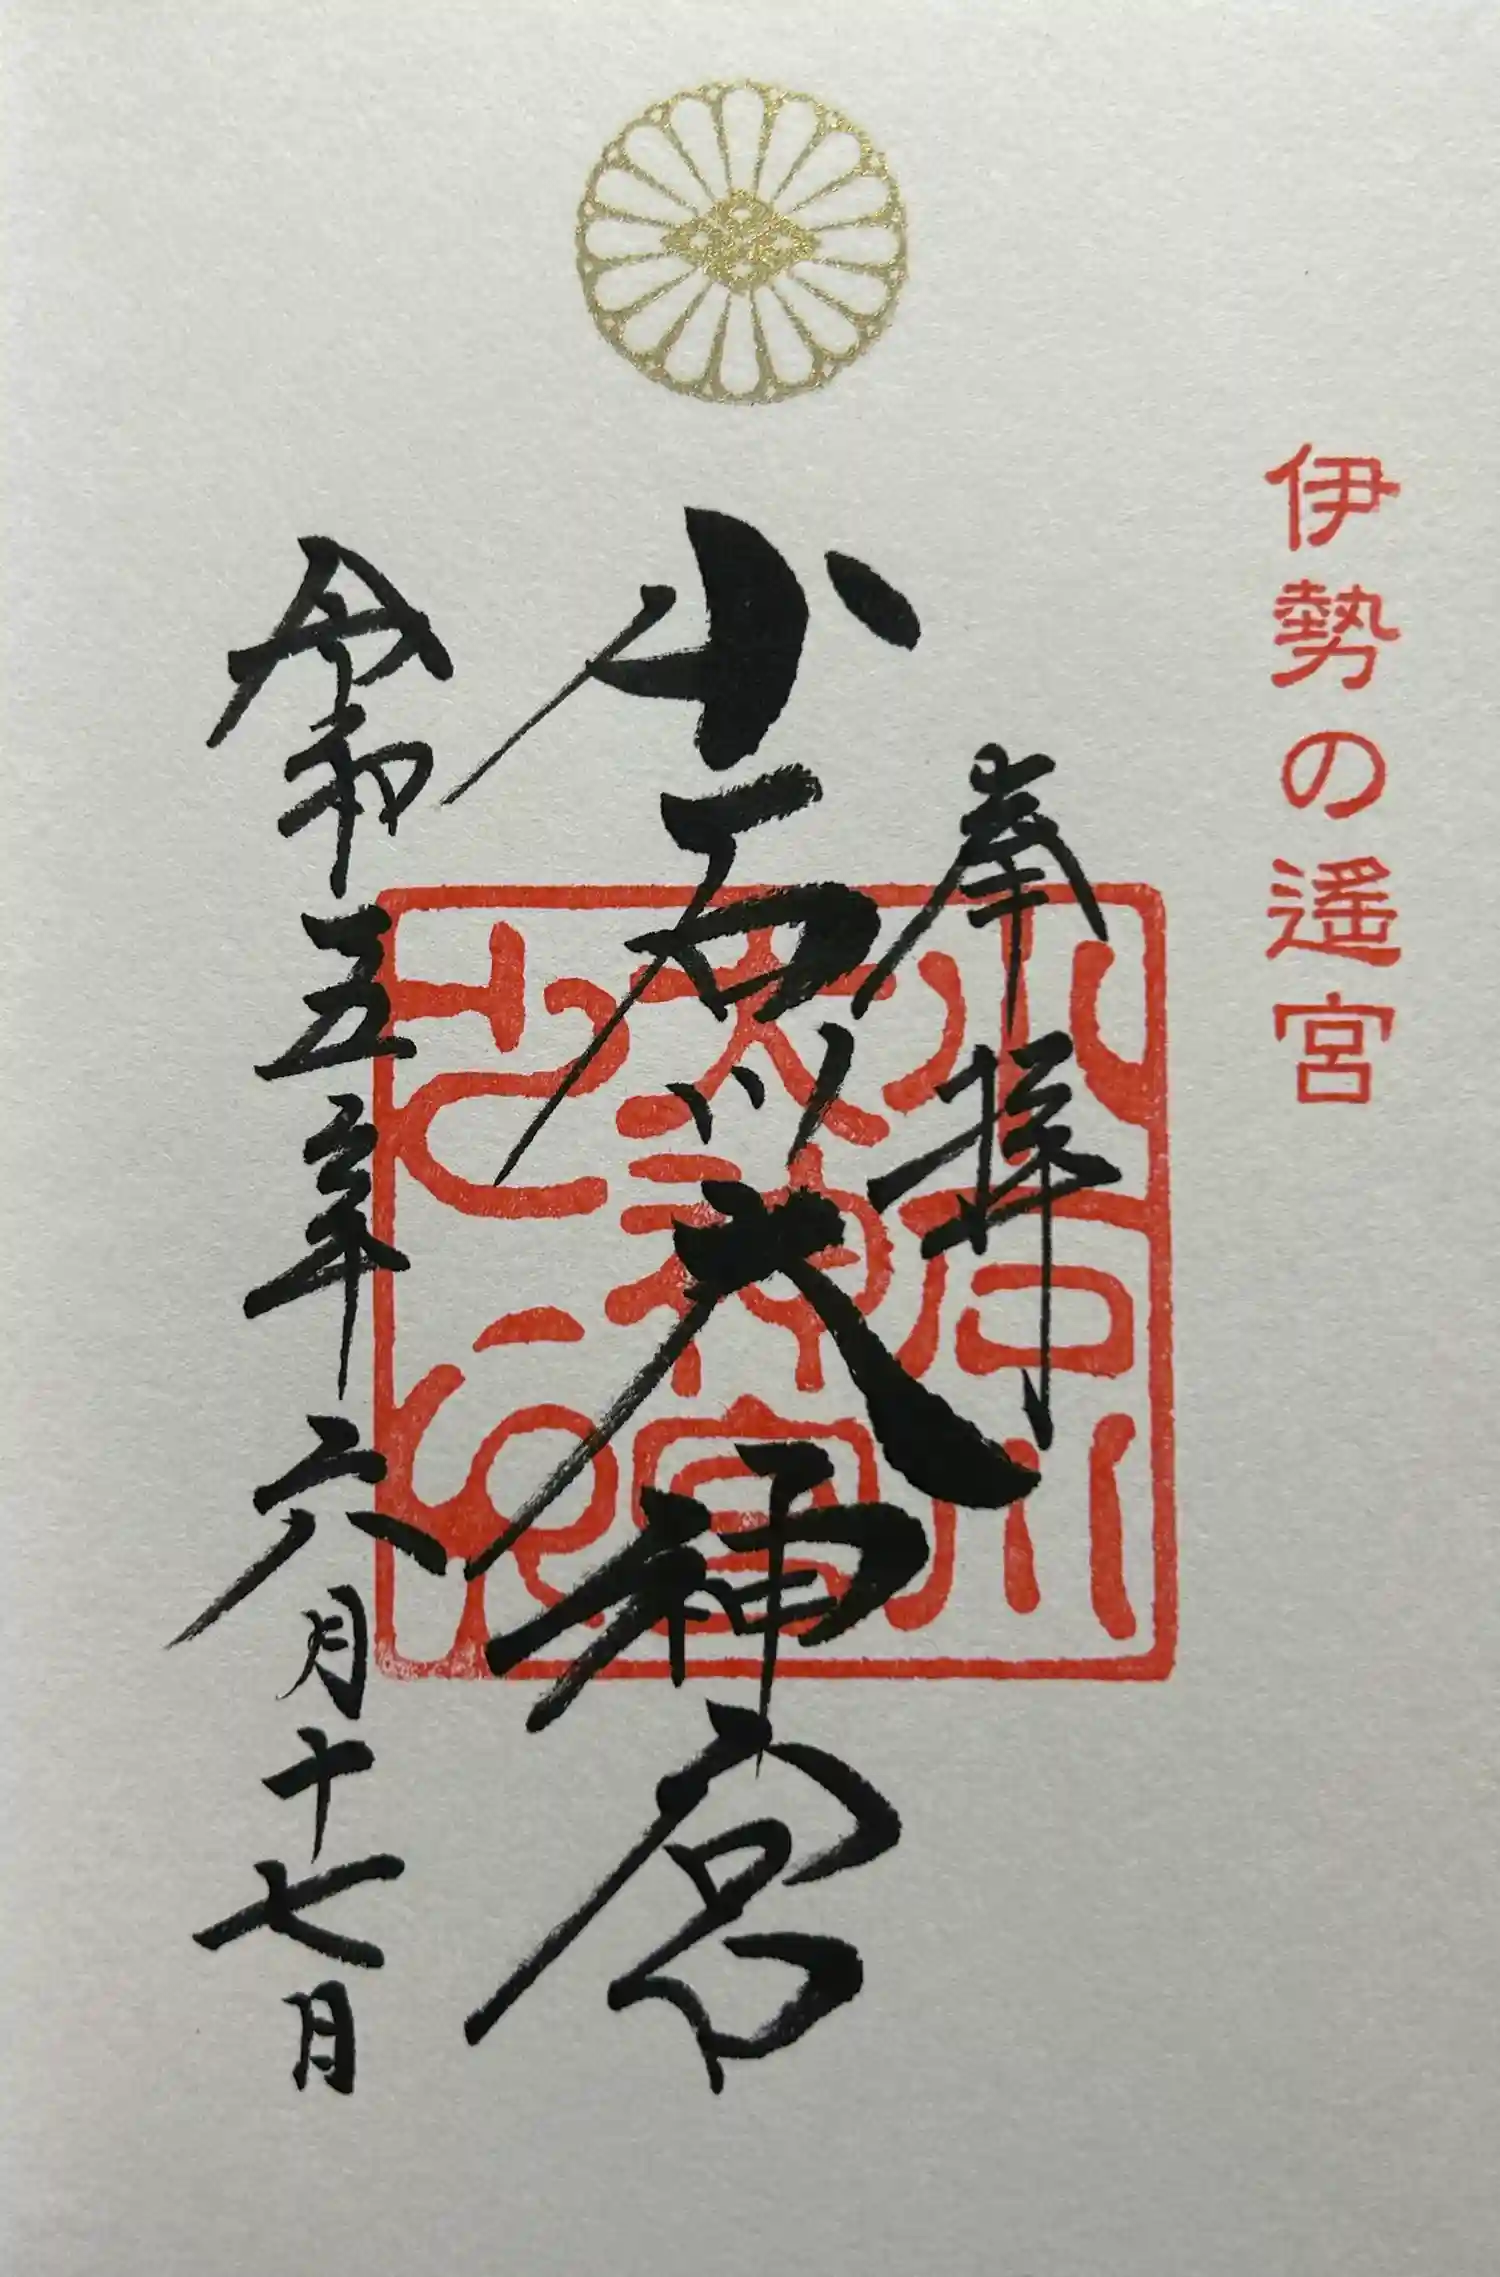 伊勢の遥宮
奉拝
小石川大神宮
令和五年六月十七日
小石川
大神宮